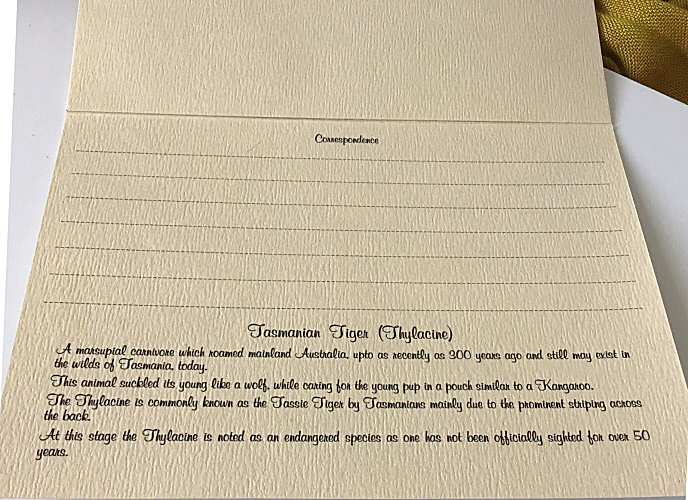 Correspondence
Tasmanian Tiger (Thylacine)
A marsupial carnivore which roamed mainland Australia, upto as recently as 300 years ago and still may exist in
the wilds of Tasmania, today.
This animal suckled its young like a wolf, while caring for the young pup in a pouch similar to a Kangaroo.
The Thylacine is commonly known as the Tassie Tiger by Tasmanians mainly due to the prominent striping across
the back.
At this stage the Thylacine is noted as an endangered species as one has not been officially sighted for over 50
years.